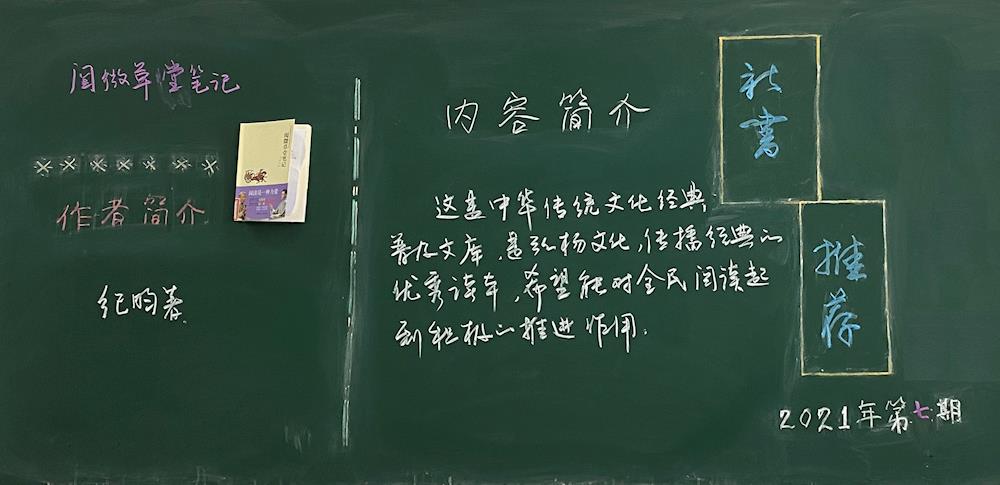 阅微草堂笔记
*******
作者简介
纪昀著
阅微草堂笔记
阅读是一种力量
内容简介
这套中华传统文化经典
普及文库,是弘杨文化,传播经典的
优秀读本,希望能对全民阅读起
到积极的推进作用.
新书
推荐
2021年第七期